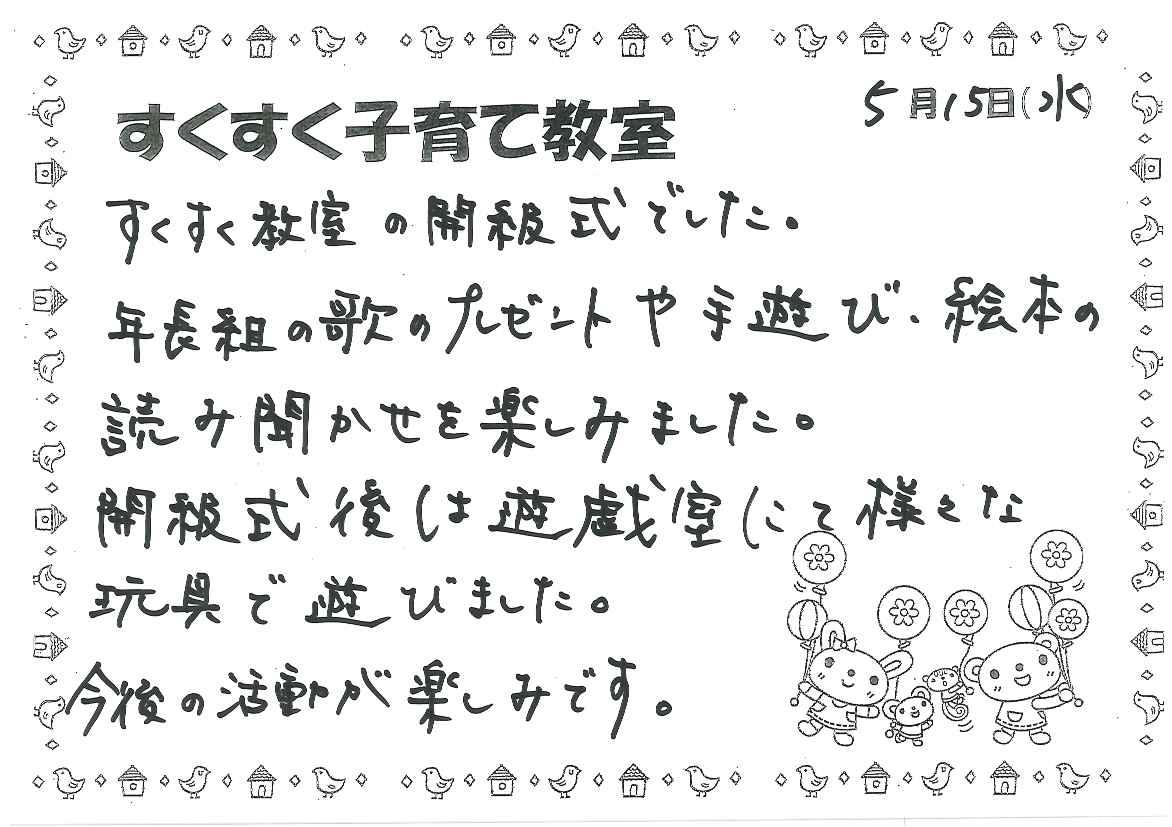 5月15日(水)
すくすく子育て教室
すくすく教室の開級式でした。
年長組の歌のプレゼントや手遊び、絵本の
読み聞かせを楽しみました。
開級式後は遊戯室にて様々な
玩具で遊びました。
今後の活動が楽しみです。